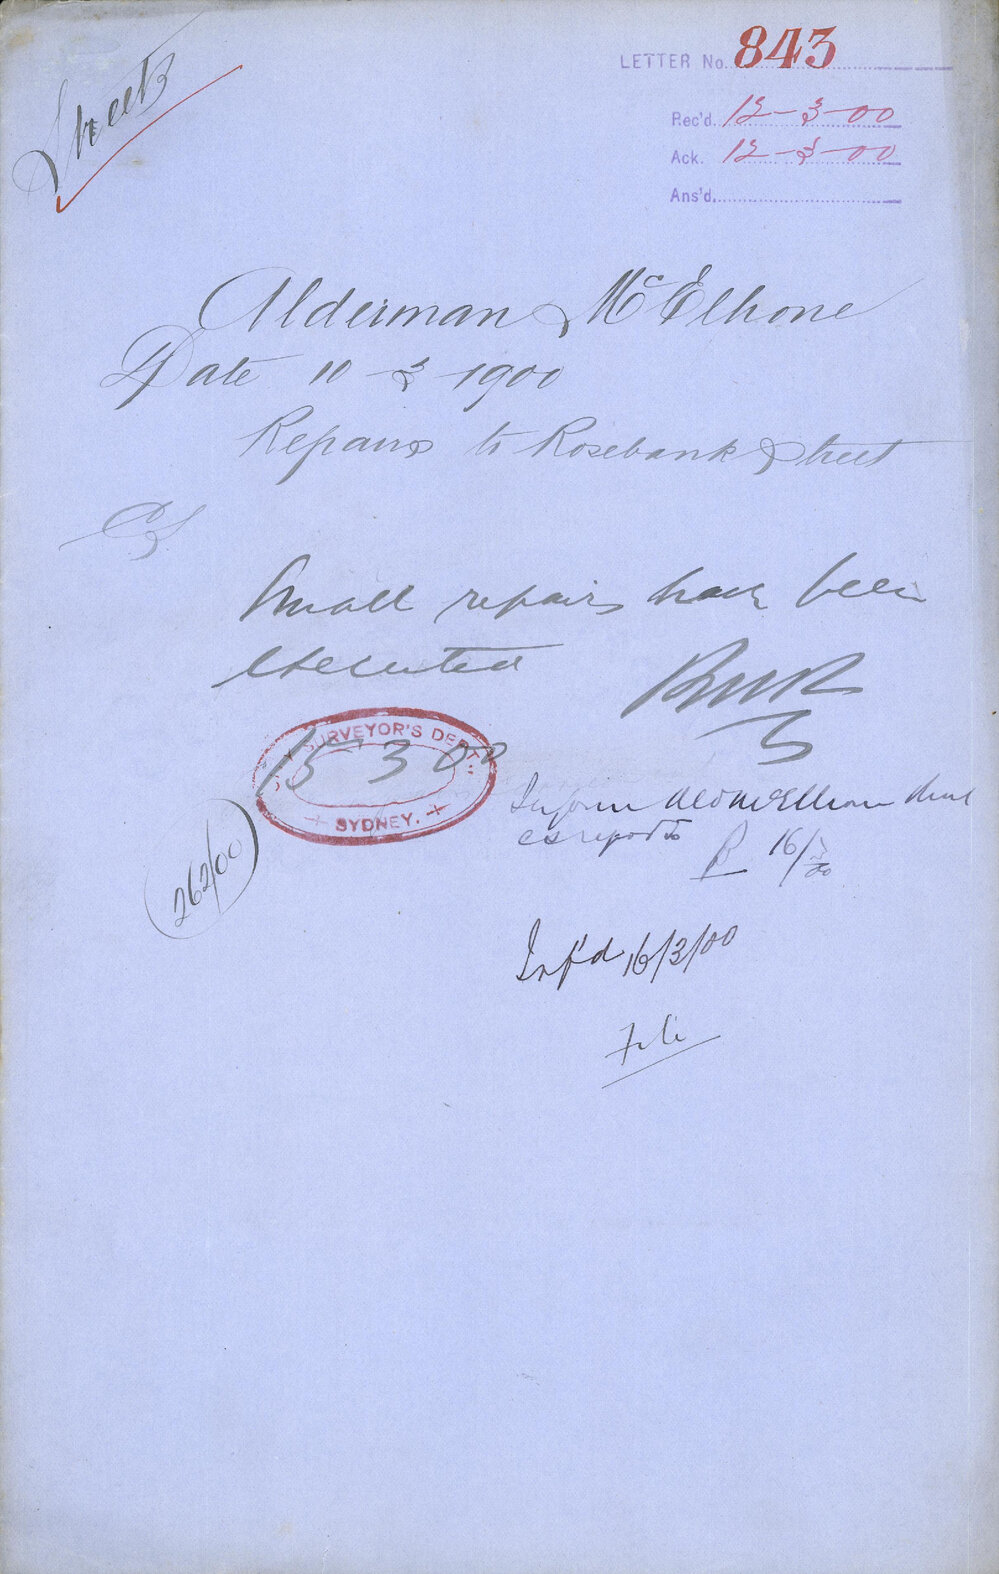 Streets
LETTER No. 843
Rec'd. 12-3-00
Ack. 12-3-00
Ans'd.
Alderman McElhone
Date 10-3-1900
Repairs to Rosebank Street
CS
Small repairs have been
executed
RWR
CITY SURVEYOR'S DEPT.
15 3 00
SYDNEY.
Inform Ald McElhone
CS reports
16/3/00
262/00
Inf'd 16/3/00
File